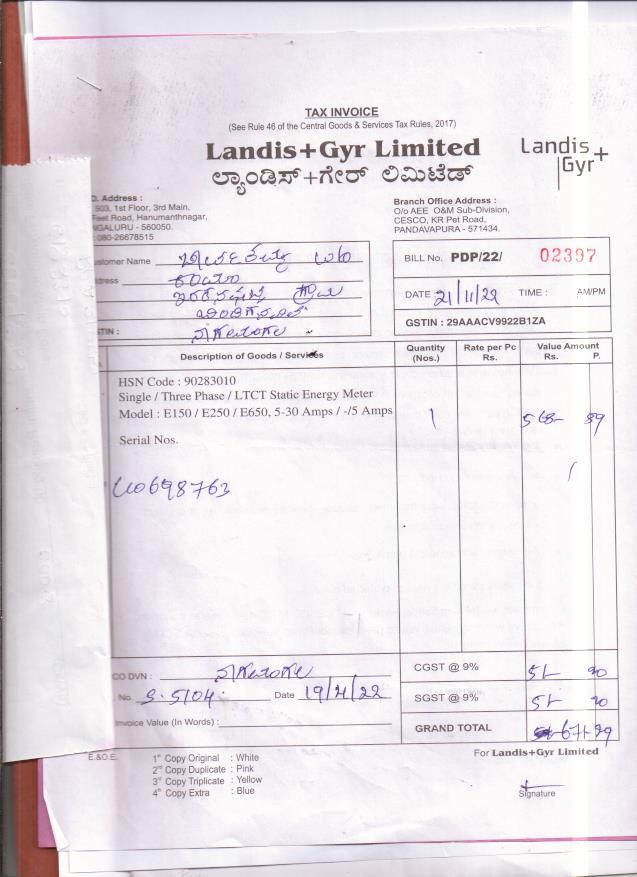 TAX INVOICE
(See Rule 46 of the Central Goods & Services Tax Rules, 2017)
Landis+Gyr Limited
ಲ್ಯಾಂಡಿಸ್+ಗೇರ್ ಲಿಮಿಟೆಡ್
Landis+
Gyr
Address :
503, 1st Floor, 3rd Main.
Feet Road, Hanumanthnagar,
560050.
080-26678515
Branch Office Address :
O/o AEE O&M Sub-Division,
CESCO, KR Pet Road,
PANDAVAPURA - 571434.
Customer Name
BILL No. PDP/22/ 02397
DATE 21/11/22 TIME : AM/PM
GSTIN : 29AAACV9922B1ZA
Description of Goods / Services
Quantity (Nos.)
Rate per Pc Rs.
Value Amount Rs. P.
HSN Code : 90283010
Single / Three Phase / LTCT Static Energy Meter
Model : E150 / E250 / E650, 5-30 Amps / -/5 Amps 1 568 89
Serial Nos.
DVN :
CGST @ 9% 51 20
No. S-5104. Date
SGST @ 9% 51 20
Invoice Value (In Words) :
GRAND TOTAL 671-29
E.&O.E.
1st Copy Original : White
2nd Copy Duplicate : Pink
3rd Copy Triplicate : Yellow
4th Copy Extra : Blue
For Landis+Gyr Limited
Signature